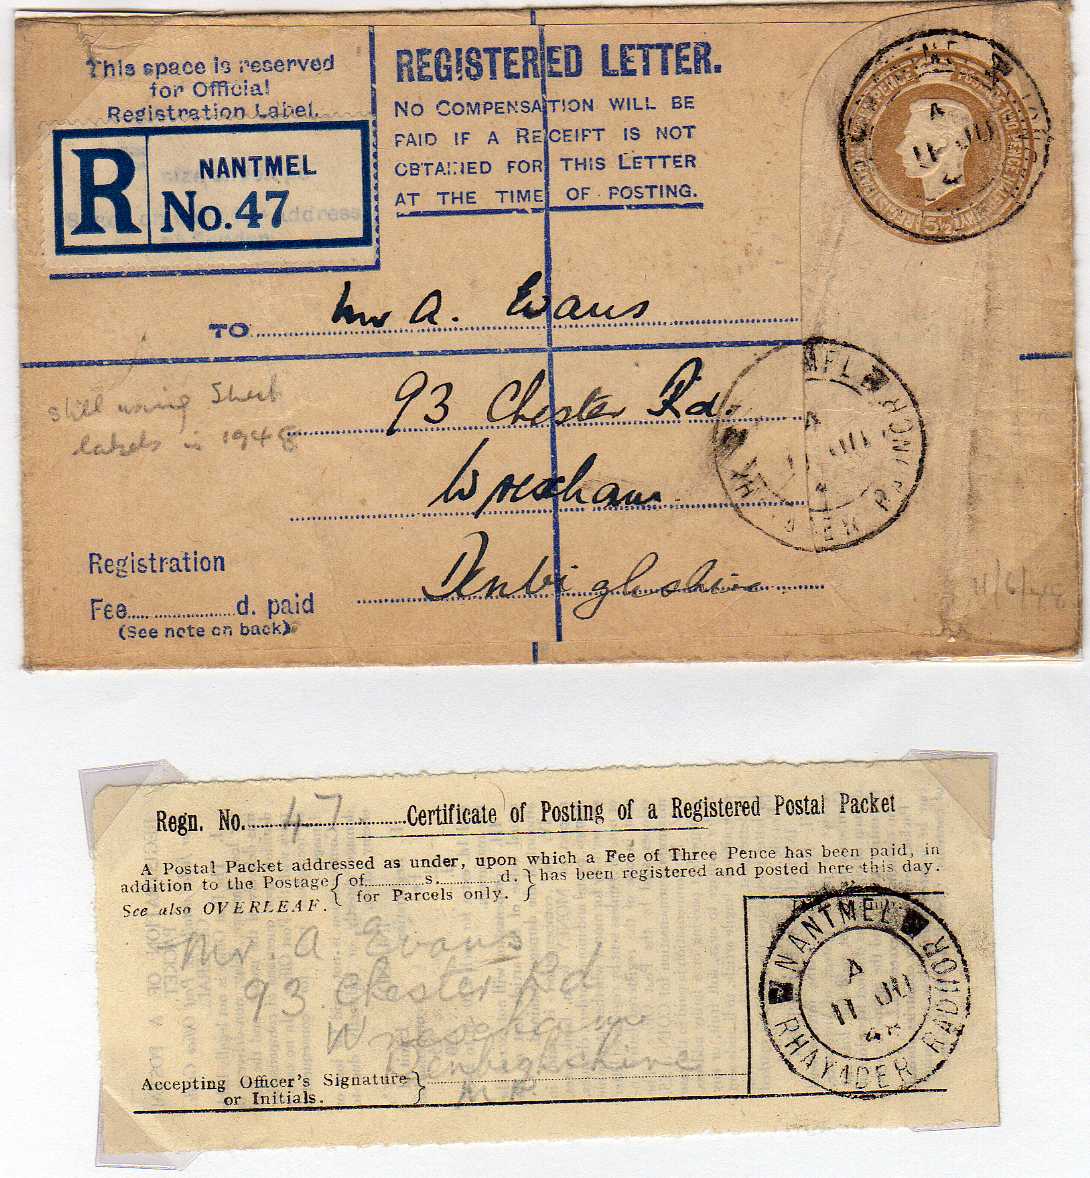 This space is reserved
for Official
Registration Label.
R NANTMEL
No. 47
REGISTERED LETTER.
NO COMPENSATION WILL BE
PAID IF A RECEIPT IS NOT
OBTAINED FOR THIS LETTER
AT THE TIME OF POSTING.
5½D
TO Mr A. Evans
93 Chester Rd.
Wrexham
Denbighshire
still using Short
labels in 1948
Registration
Fee d. paid
(See note on back)
11/6/48
A
11 JU
Regn. No. 47 Certificate of Posting of a Registered Postal Packet
A Postal Packet addressed as under, upon which a Fee of Three Pence has been paid, in
addition to the Postage { of s. d. } has been registered and posted here this day.
for Parcels only.
See also OVERLEAF.
Mr. A Evans
93 Chester Rd
Wrexham
Denbighshire
Accepting Officer's Signature
or Initials.
M.P.
NANTMEL
A
11 JU
48
RHAYADER RADNOR